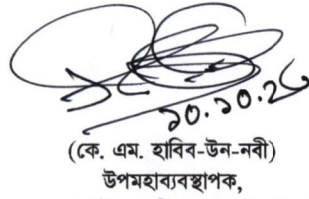 ১০.১০.২৫
(কে. এম. হাবিব-উন-নবী)
উপমহাব্যবস্থাপক,